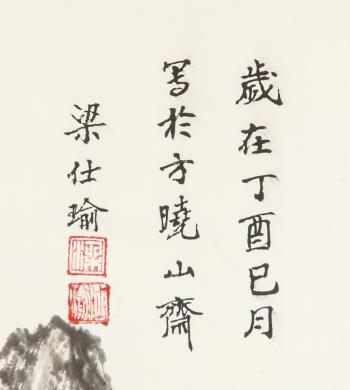 歲在丁酉巳月
写於方曉山齋
梁仕瑜